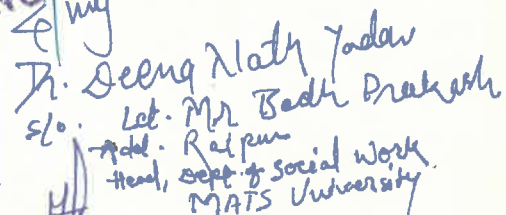 Dr. Deena Nath Yadav
S/o. Lat. Mr Badri Prakash
Add. Raipur
Head, Dept. of Social Work
MATS University.